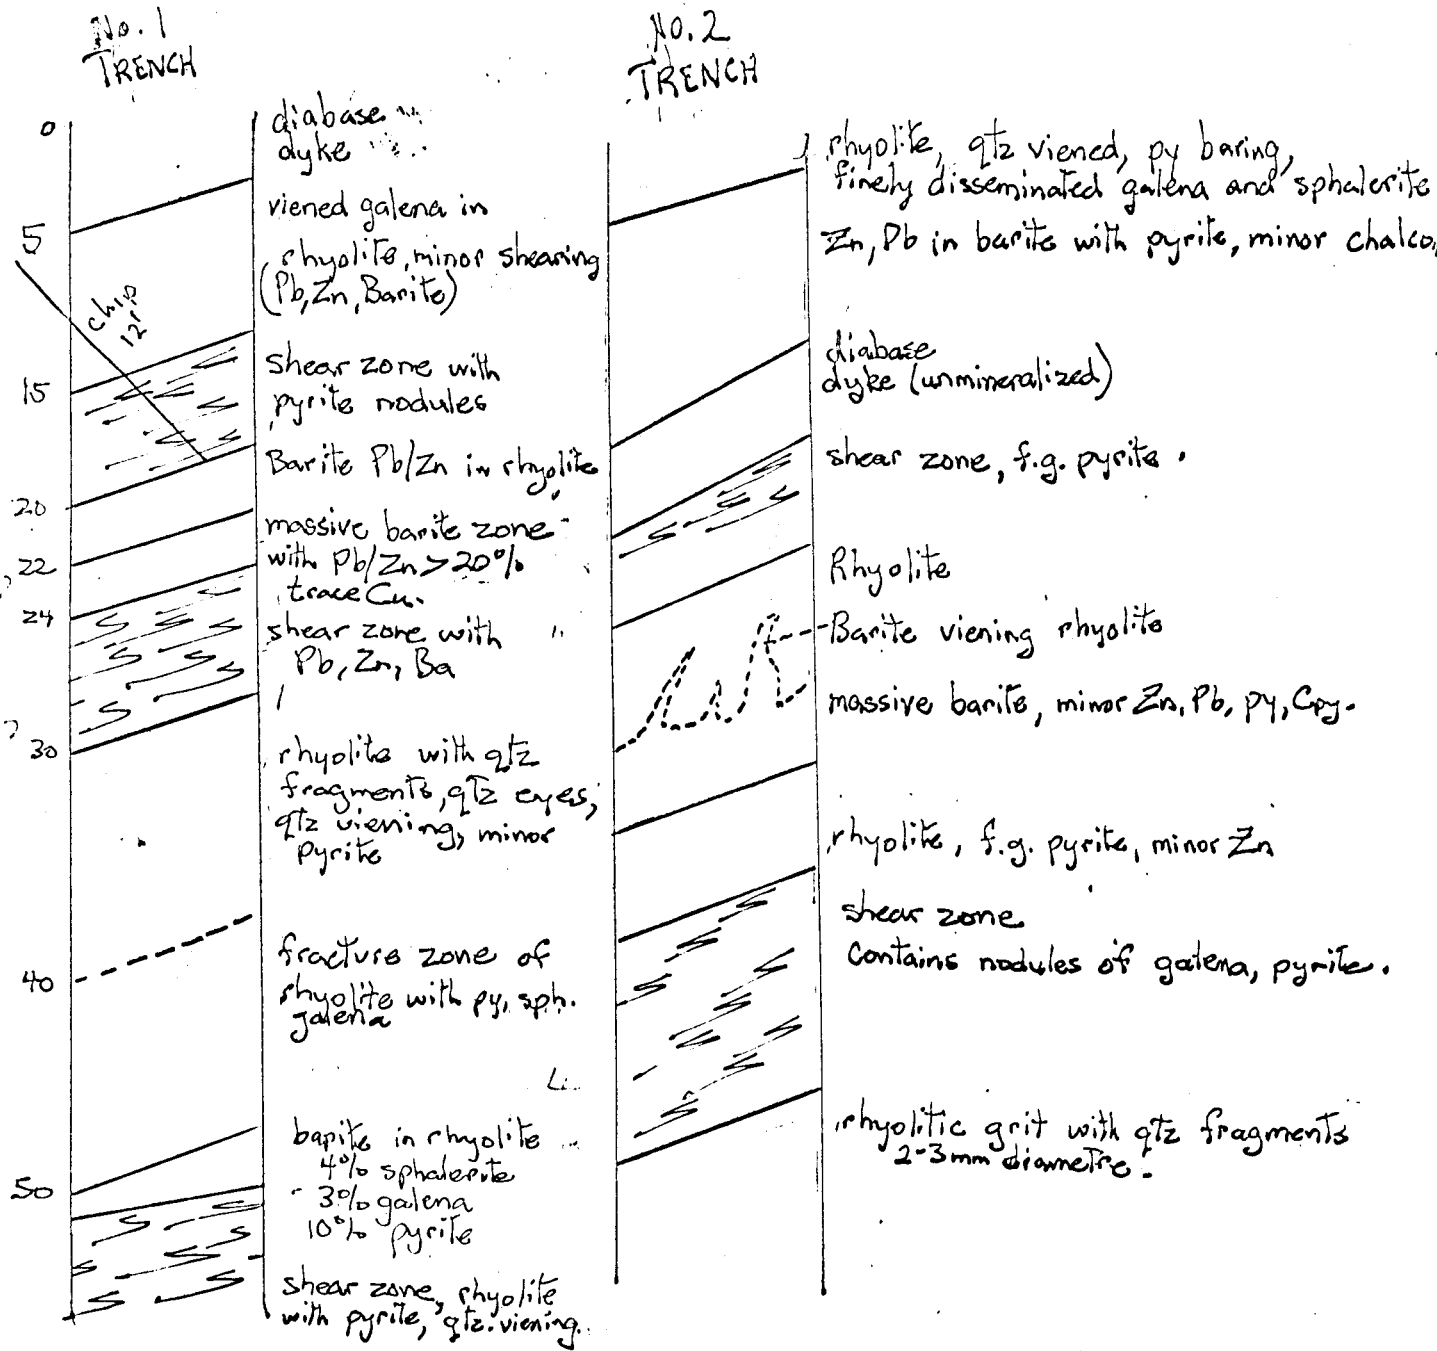 No. 1
TRENCH
0
5
15
20
22
24
30
40
50
chip
diabase
dyke
viened galena in
rhyolite, minor shearing
(Pb, Zn, Barite)
shear zone with
pyrite nodules
Barite Pb/Zn in rhyolite
massive barite zone
with Pb/Zn > 20%
trace Cu.
shear zone with
Pb, Zn, Ba
rhyolite with qtz
fragments, qtz eyes,
qtz viening, minor
pyrite
fracture zone of
rhyolite with py, sph.
galena
barite in rhyolite
4% sphalerite
3% galena
10% pyrite
shear zone, rhyolite
with pyrite, qtz. viening.
No. 2
TRENCH
rhyolite, qtz viened, py baring,
finely disseminated galena and sphalerite
Zn, Pb in barite with pyrite, minor chalco.
diabase
dyke (unmineralized)
shear zone, f.g. pyrite.
Rhyolite
Barite viening rhyolite
massive barite, minor Zn, Pb, py, Cpy.
rhyolite, f.g. pyrite, minor Zn
shear zone
Contains nodules of galena, pyrite.
rhyolitic grit with qtz fragments
2-3mm diametre.